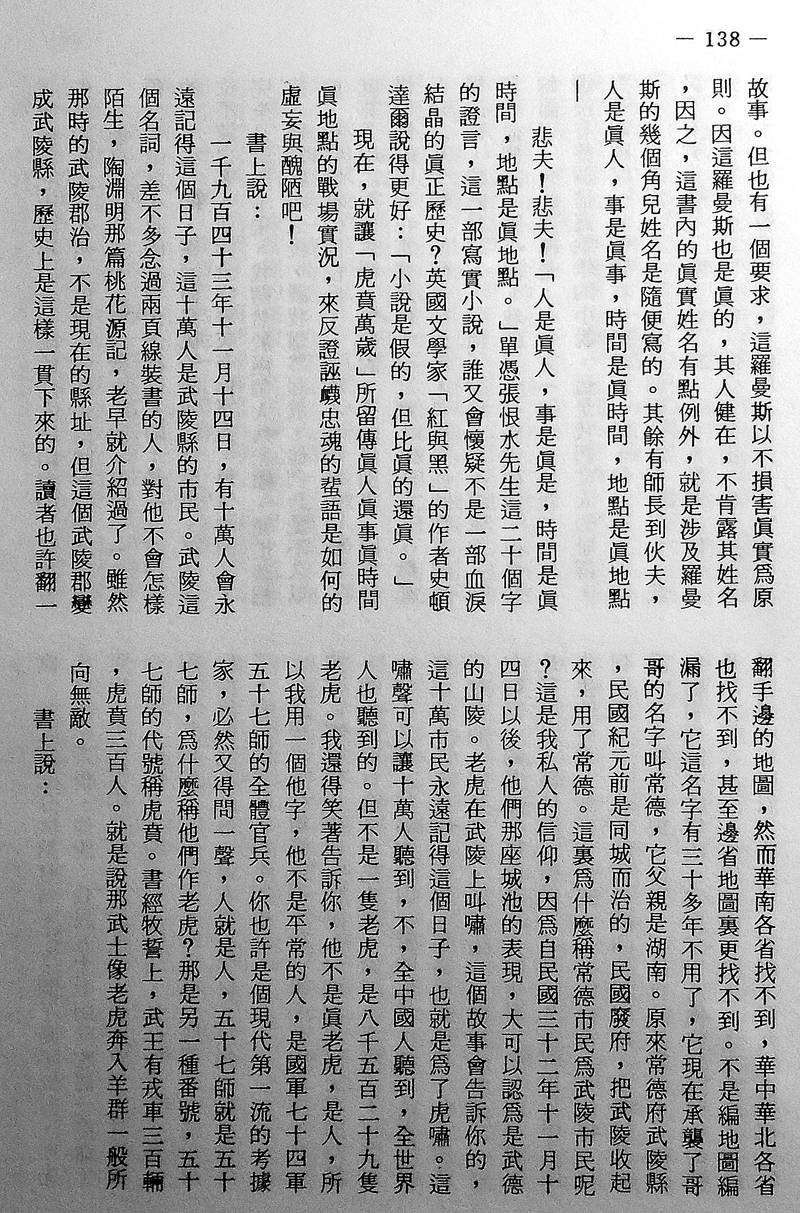 — 138 —
故事。但也有一個要求，這羅曼斯以不損害眞實爲原
則。因這羅曼斯也是眞的，其人健在，不肯露其姓名
，因之，這書內的眞實姓名有點例外，就是涉及羅曼
斯的幾個角兒姓名是隨便寫的。其餘有師長到伙夫，
人是眞人，事是眞事，時間是眞時間，地點是眞地點
—
悲夫！悲夫！「人是眞人，事是眞是，時間是眞
時間，地點是眞地點。」單憑張恨水先生這二十個字
的證言，這一部寫實小說，誰又會懷疑不是一部血淚
結晶的眞正歷史？英國文學家「紅與黑」的作者史頓
達爾說得更好：「小說是假的，但比眞的還眞。」
現在，就讓「虎賁萬歲」所留傳眞人眞事眞時間
眞地點的戰場實況，來反證誣衊忠魂的蜚語是如何的
虛妄與醜陋吧！
書上說：
一千九百四十三年十一月十四日，有十萬人會永
遠記得這個日子，這十萬人是武陵縣的市民。武陵這
個名詞，差不多念過兩頁線裝書的人，對他不會怎樣
陌生，陶淵明那篇桃花源記，老早就介紹過了。雖然
那時的武陵郡治，不是現在的縣址，但這個武陵郡變
成武陵縣，歷史上是這樣一貫下來的。讀者也許翻一
翻手邊的地圖，然而華南各省找不到，華中華北各省
也找不到，甚至邊省地圖裏更找不到。不是編地圖編
漏了，它這名字有三十多年不用了，它現在承襲了哥
哥的名字叫常德，它父親是湖南。原來常德府武陵縣
，民國紀元前是同城而治的，民國廢府，把武陵收起
來，用了常德。這裏爲什麼稱常德市民爲武陵市民呢
？這是我私人的信仰，因爲自民國三十二年十一月十
四日以後，他們那座城池的表現，大可以認爲是武德
的山陵。老虎在武陵上叫嘯，這個故事會告訴你的，
這十萬市民永遠記得這個日子，也就是爲了虎嘯。這
嘯聲可以讓十萬人聽到，不，全中國人聽到，全世界
人也聽到的。但不是一隻老虎，是八千五百二十九隻
老虎。我還得笑著告訴你，他不是眞老虎，是人，所
以我用一個他字，他不是平常的人，是國軍七十四軍
五十七師的全體官兵。你也許是個現代第一流的考據
家，必然又得問一聲，人就是人，五十七師就是五十
七師，爲什麼稱他們作老虎？那是另一種番號，五十
七師的代號稱虎賁。書經牧誓上，武王有戎車三百輛
，虎賁三百人。就是說那武士像老虎奔入羊群一般所
向無敵。
書上說：